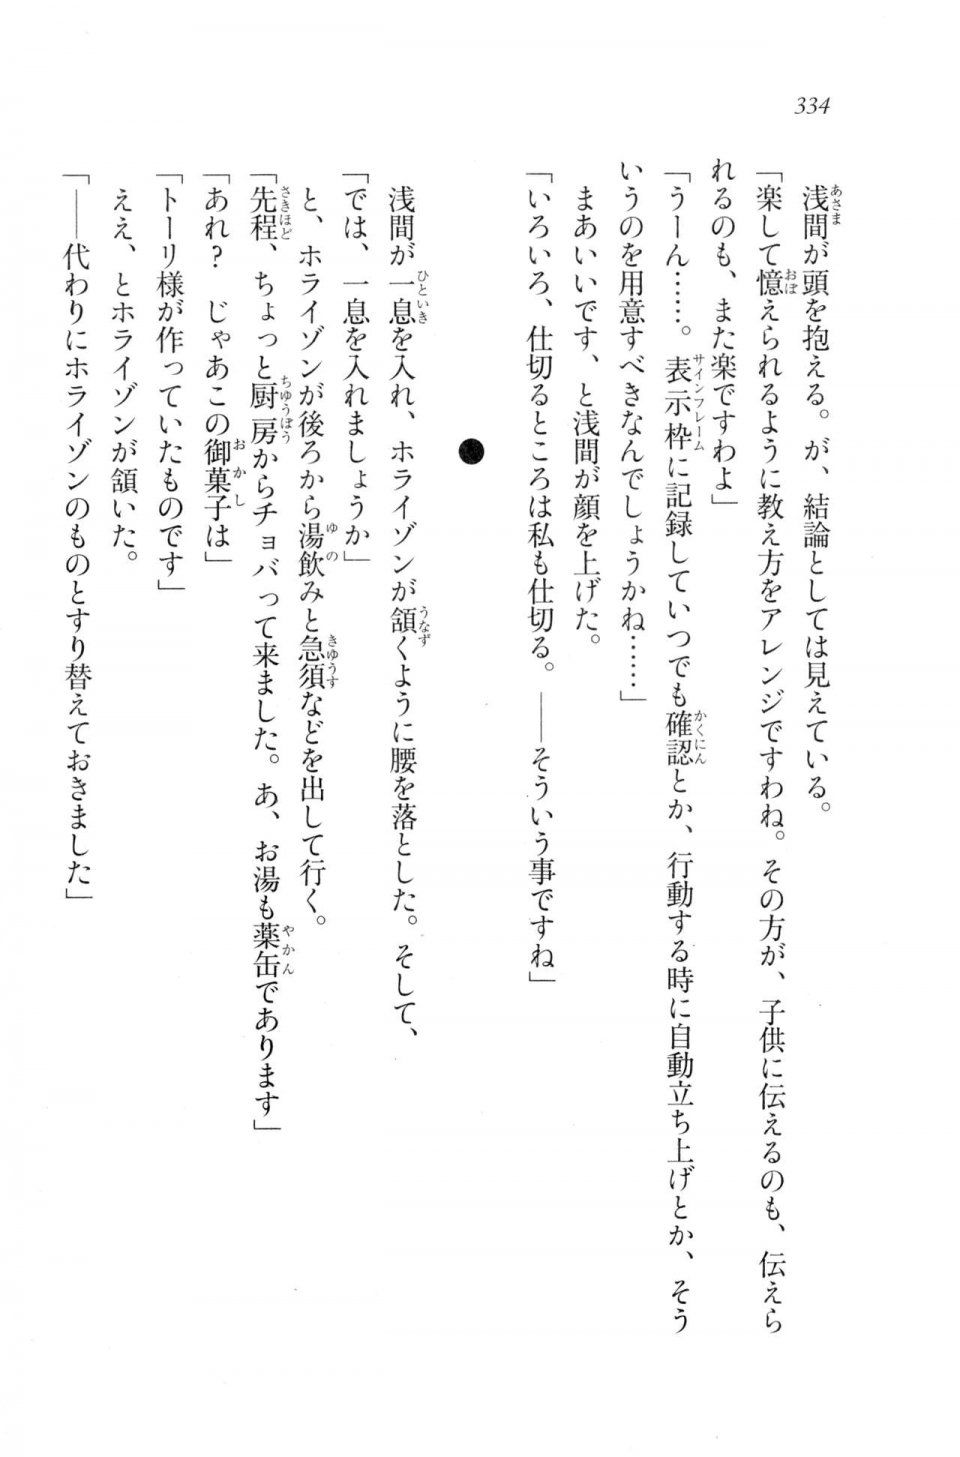 334
浅間が頭を抱える。が、結論としては見えている。
「楽して憶えられるように教え方をアレンジですわね。その方が、子供に伝えるのも、伝えら
れるのも、また楽ですわよ」
「うーん……。表示枠に記録していつでも確認とか、行動する時に自動立ち上げとか、そう
いうのを用意すべきなんでしょうかね……」
まあいいです、と浅間が顔を上げた。
「いろいろ、仕切るところは私も仕切る。――そういう事ですね」
●
浅間が一息を入れ、ホライゾンが頷くように腰を落とした。そして、
「では、一息を入れましょうか」
と、ホライゾンが後ろから湯飲みと急須などを出して行く。
「先程、ちょっと厨房からチョバって来ました。あ、お湯も薬缶であります」
「あれ？　じゃあこの御菓子は」
「トーリ様が作っていたものです」
ええ、とホライゾンが頷いた。
「――代わりにホライゾンのものとすり替えておきました」